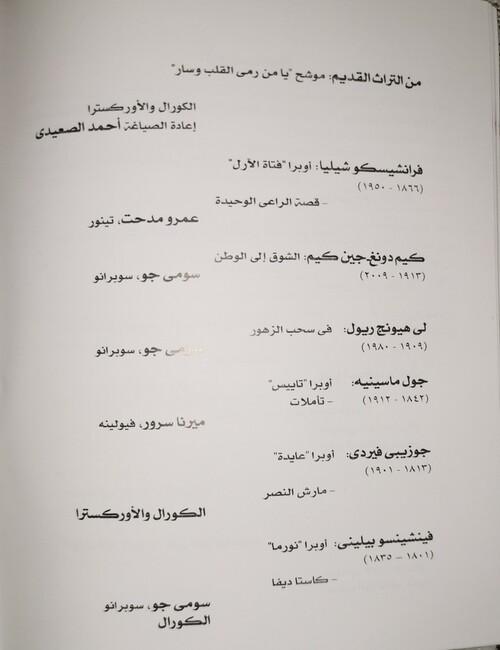 من التراث القديم: موشح "يا من رمى القلب وسار"
الكورال والأوركسترا
إعادة الصياغة أحمد الصعيدى
فرانشيسكو شيليا: أوبرا "فتاة الأرل"
(١٨٦٦ - ١٩٥٠)
- قصة الراعى الوحيدة
عمرو مدحت، تينور
كيم دونغ-جين كيم: الشوق إلى الوطن
(١٩١٣ - ٢٠٠٩)
سومى جو، سوبرانو
لى هيونج ريول: فى سحب الزهور
(١٩٠٩ - ١٩٨٠)
سومى جو، سوبرانو
جول ماسينيه: أوبرا "تاييس"
(١٨٤٢ - ١٩١٢)
- تأملات
ميرنا سرور، فيولينه
جوزيبى فيردى: أوبرا "عايدة"
(١٨١٣ - ١٩٠١)
- مارش النصر
الكورال والأوركسترا
فينشينسو بيلينى: أوبرا "نورما"
(١٨٠١ - ١٨٣٥)
- كاستا ديفا
سومى جو، سوبرانو
الكورال